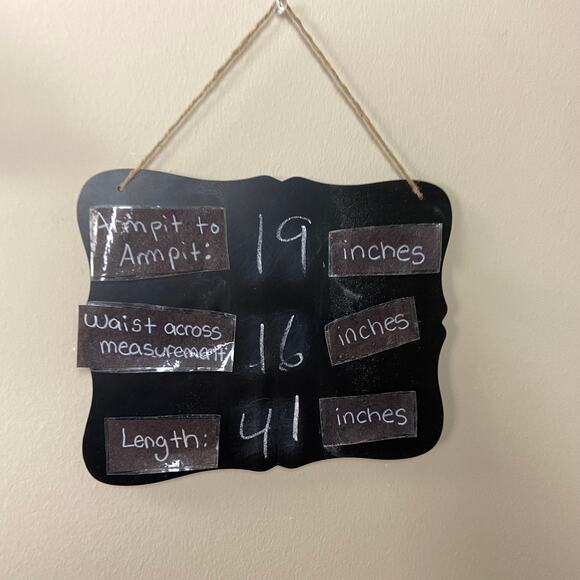 Armpit to
Armpit: 19 inches
Waist across
measurement 16 inches
Length: 41 inches